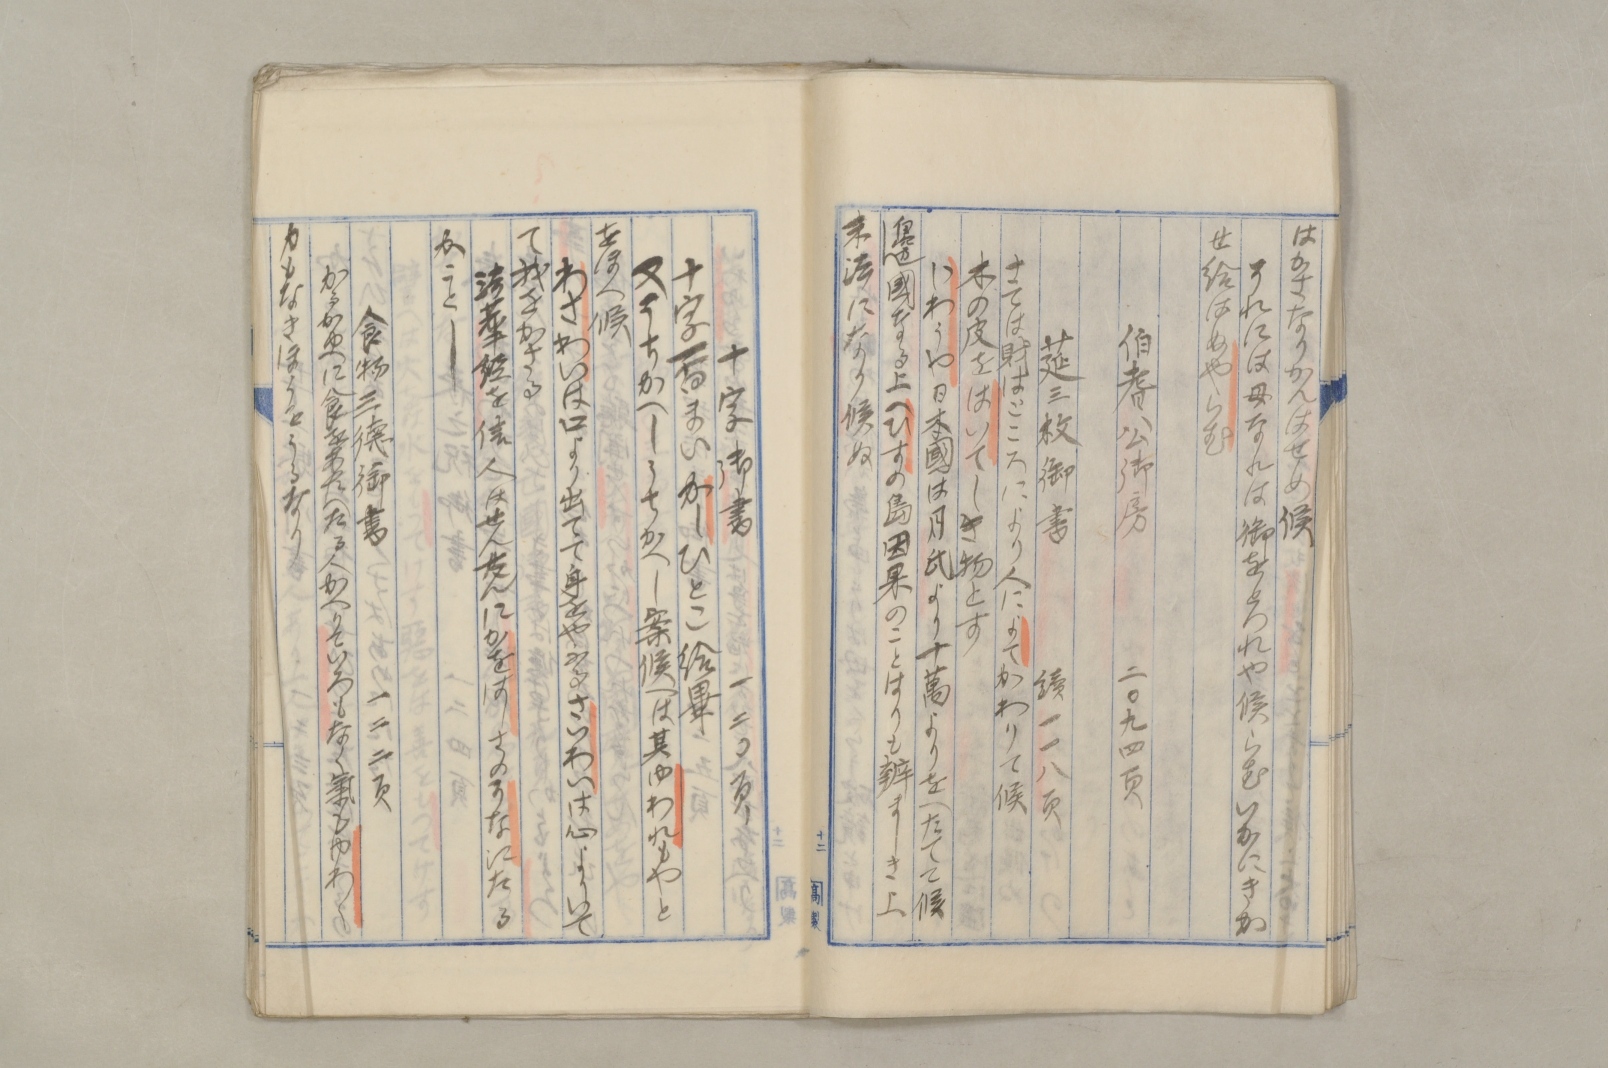 はかさなりかんはせめ候
それには母なれは御をとつれや候らむいかにきか
せ給はぬやらむ
伯耆公御房　二〇九四頁
莚三枚御書　續一一八頁
さては財はところにより人によてかわりて候
木の皮をはいてしき物とす
いわうや日本國は月氏より十萬よりをへたてて候
邊國なる上へひすの島因果のことはりも辨ましき上
末法になり候ぬ
十二
高製
十字御書　一二〇八頁
十字一百まいかしひとこ給畢
又うちかへしうちかへし案候へは其ゆわれもやと
をほへ候
わさわいは口より出てて身をやふるさいわいは心よりいて
て我をかさる
法華經を信人はせんたんにかをはしさのうないたる
かことし
食物三德御書　一二二二頁
かるかゆへに食をあたへたる人かへりていろもなく氣もゆわく
力もなきほうをうるなり